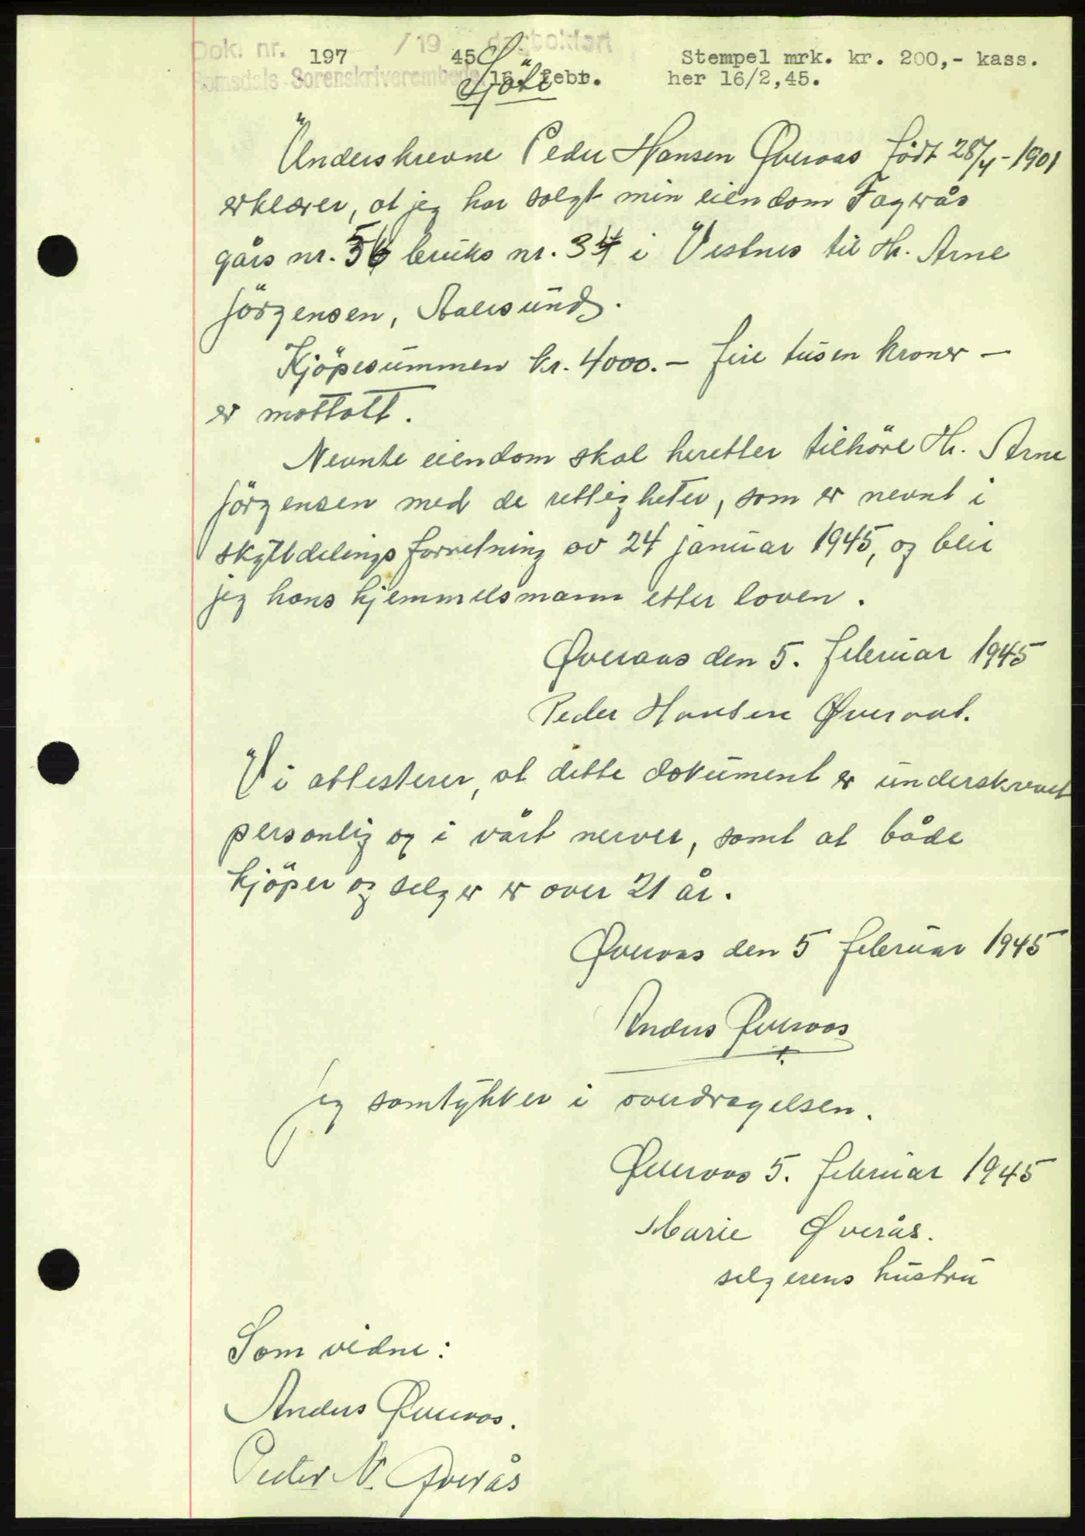 Dok. nr. 197 / 19 45 dagbokført
Romsdals Sorenskriverembede 15. febr.
Stempel mrk. kr. 200,- kass.
her 16/2,45.
Skjöte
Underskrevne Peder Hansen Øveraas född 28/4-1901
erklærer, at jeg har solgt min eiendom Fagerås
gårs nr. 56 bruks nr. 34 i Vestnes til Hr. Arne
Jörgensen, Aalesund.
Kjöpesummen kr. 4000.- fire tusen kroner -
er mottatt.
Nevnte eiendom skal heretter tilhöre Hr. Arne
Jörgensen med de rettigheter, som er nevnt i
skylddelingsforretning av 24 januar 1945, og blir
jeg hans hjemmelsmann etter loven.
Øveraas den 5. februar 1945
Peder Hansen Øveraas.
Vi attesterer, at dette dokument er underskrevet
personlig og i vårt nerver, samt at både
kjöper og selger er over 21 år.
Øveraas den 5 februar 1945
Anders Øveraas
Jeg samtykker i overdragelsen.
Øveraas 5. februar 1945
Marie Øverås.
selgerens hustru
Som vidne:
Anders Øveraas.
Peder N. Øverås